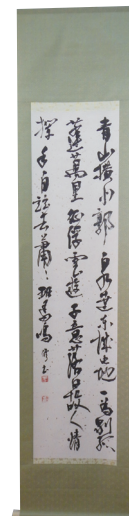 青山橫北郭 白水遶東城 此地一為別 孤
蓬萬里征 浮雲遊子意 落日故人情
揮手自茲去 蕭々班馬鳴